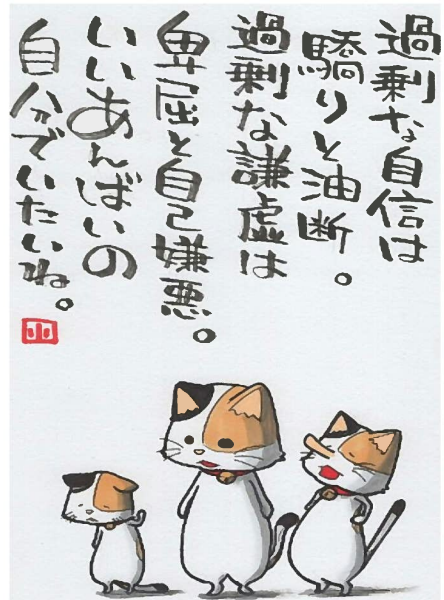 過剰な自信は
驕りと油断。
過剰な謙虚は
卑屈と自己嫌悪。
いいあんばいの
自分でいたいね。